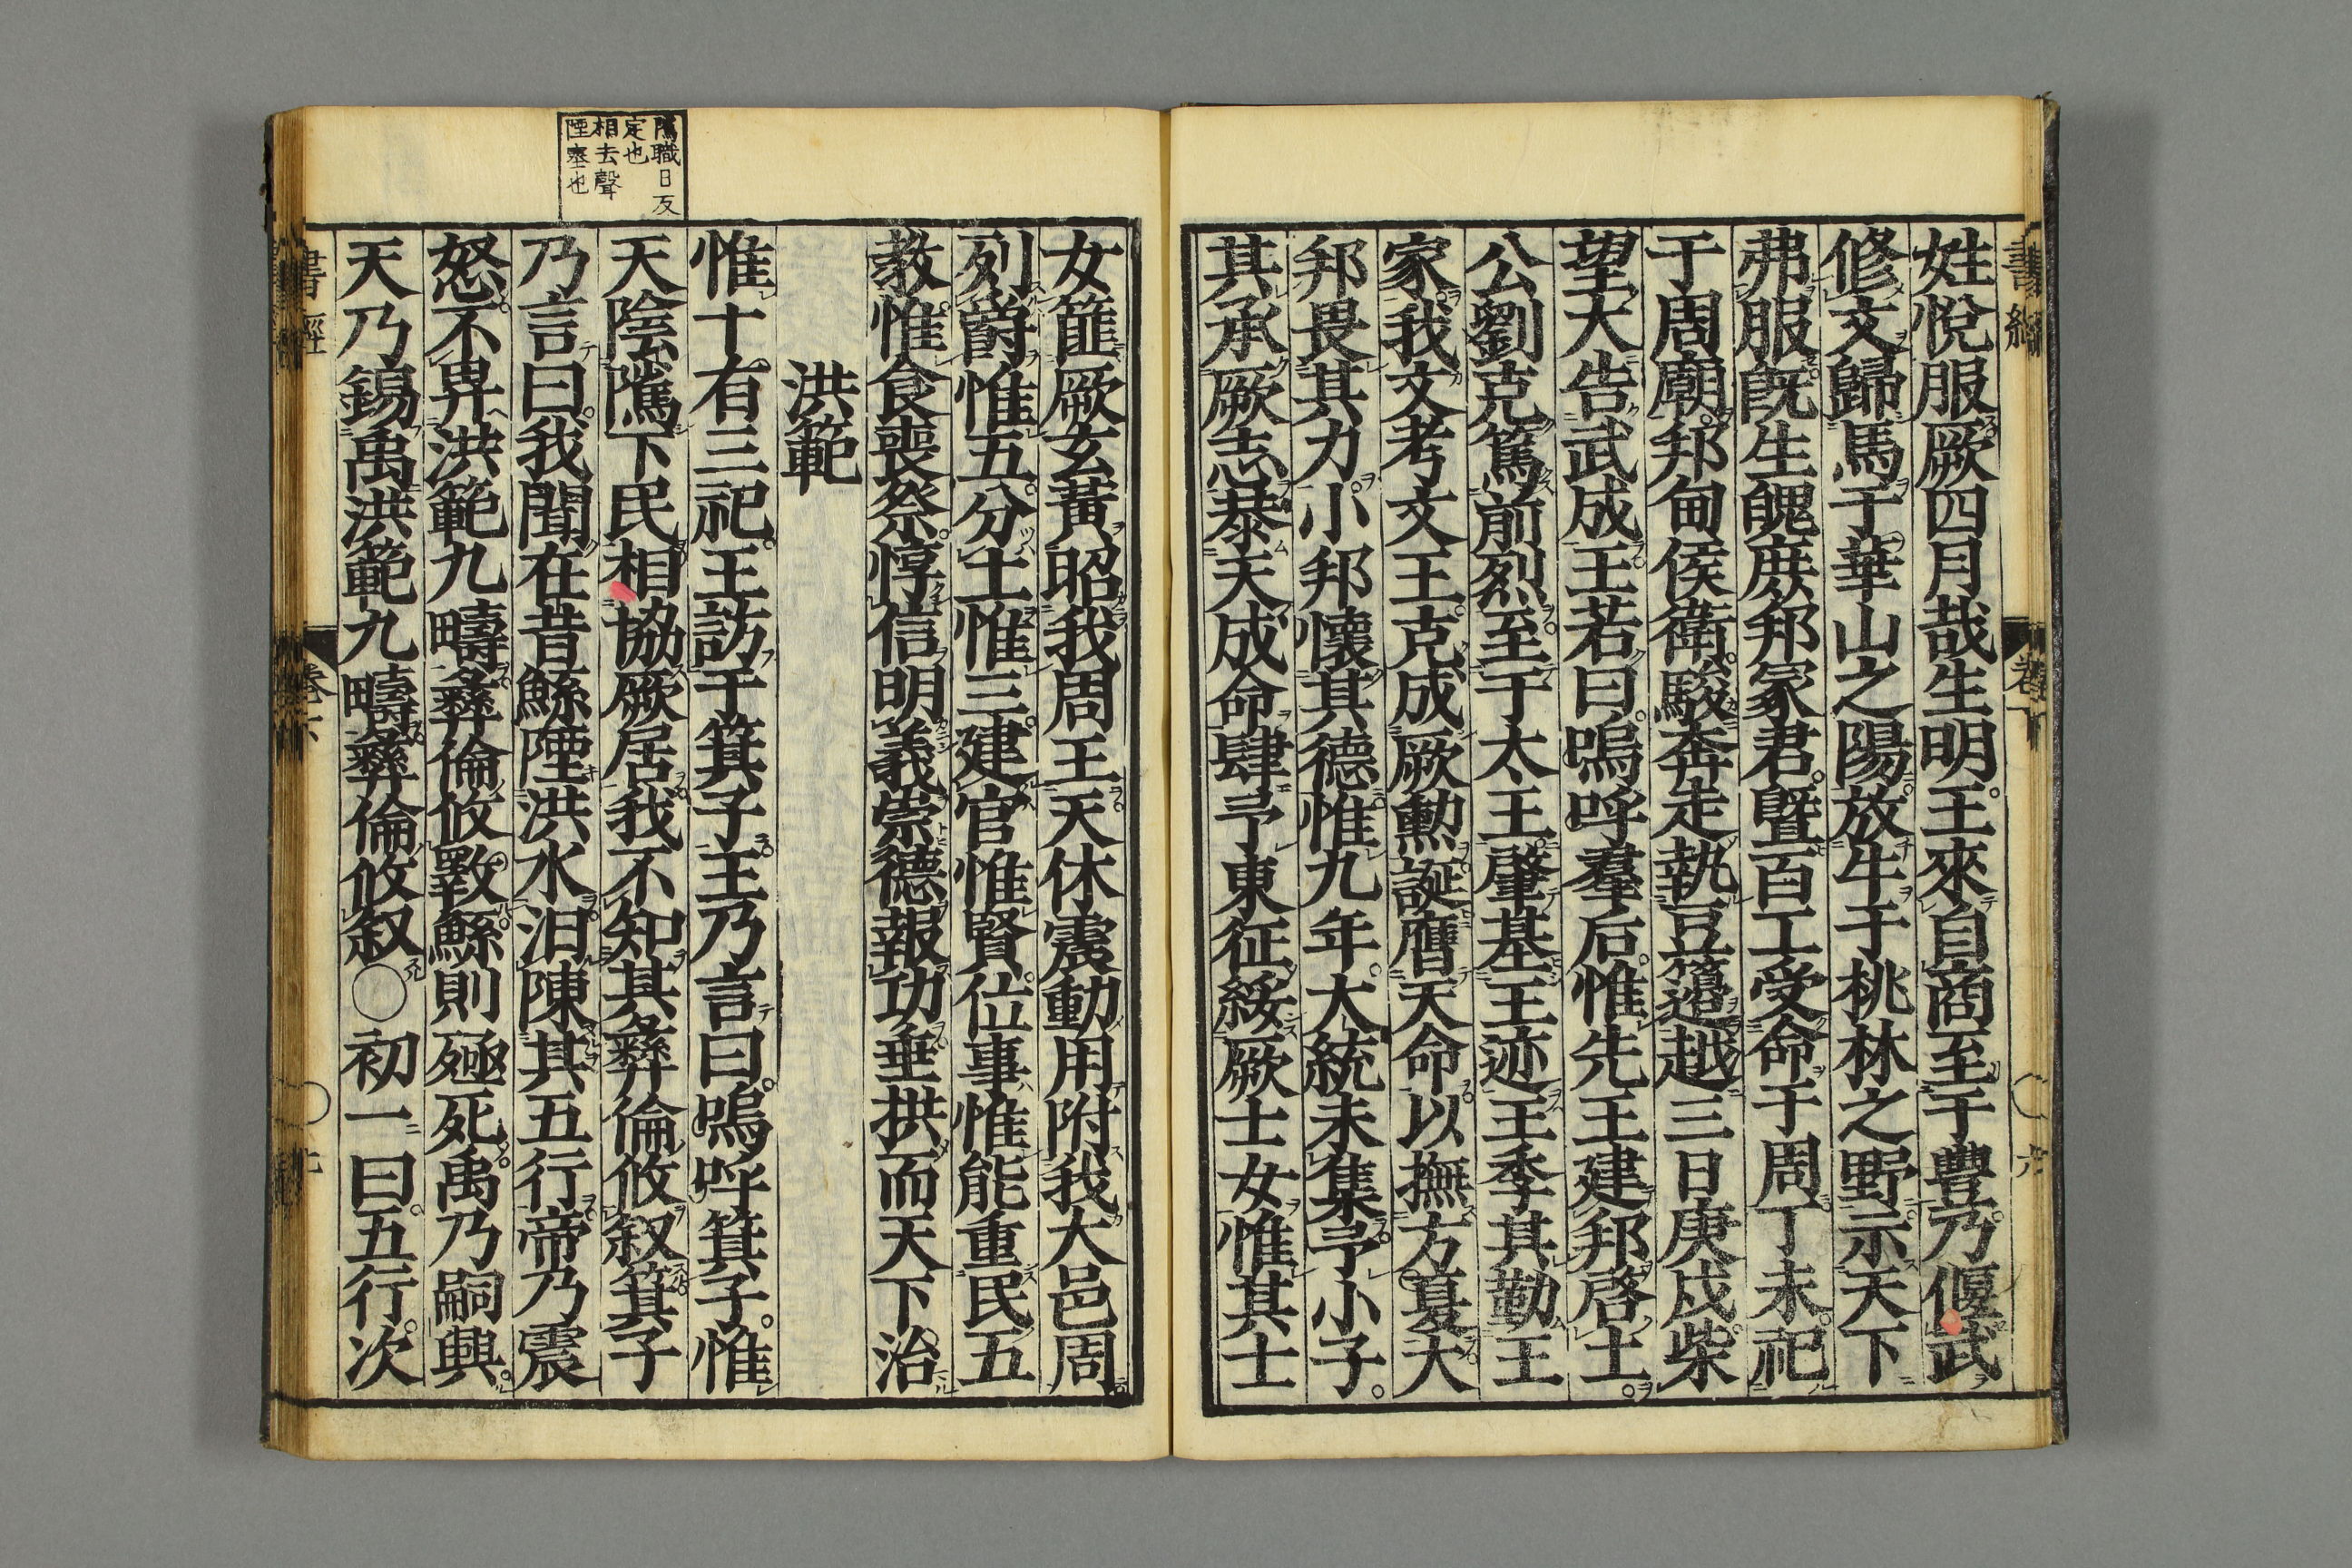 姓悅服厥四月哉生明王來自商至于豊乃偃武
修文歸馬于華山之陽放牛于桃林之野示天下
弗服旣生魄庶邦冢君曁百工受命于周丁未祀
于周廟邦甸侯衛駿奔走執豆籩越三日庚戌柴
望大告武成王若曰嗚呼羣后惟先王建邦啓土
公劉克篤前烈至于太王肇基王迹王季其勤王
家我文考文王克成厥勳誕膺天命以撫方夏大
邦畏其力小邦懷其德惟九年大統未集予小子
其承厥志恭天成命肆予東征綏厥士女惟其士
女篚厥玄黃昭我周王天休震動用附我大邑周
列爵惟五分土惟三建官惟賢位事惟能重民五
敎惟食喪祭惇信明義崇德報功垂拱而天下治
洪範
惟十有三祀王訪于箕子王乃言曰嗚呼箕子惟
天陰隲下民相協厥居我不知其彝倫攸叙箕子
乃言曰我聞在昔鯀陻洪水汩陳其五行帝乃震
怒不畀洪範九疇彝倫攸斁鯀則殛死禹乃嗣興
天乃錫禹洪範九疇彝倫攸叙〇初一曰五行次
隲職日反
定也
相去聲
陻塞也
書經
卷六